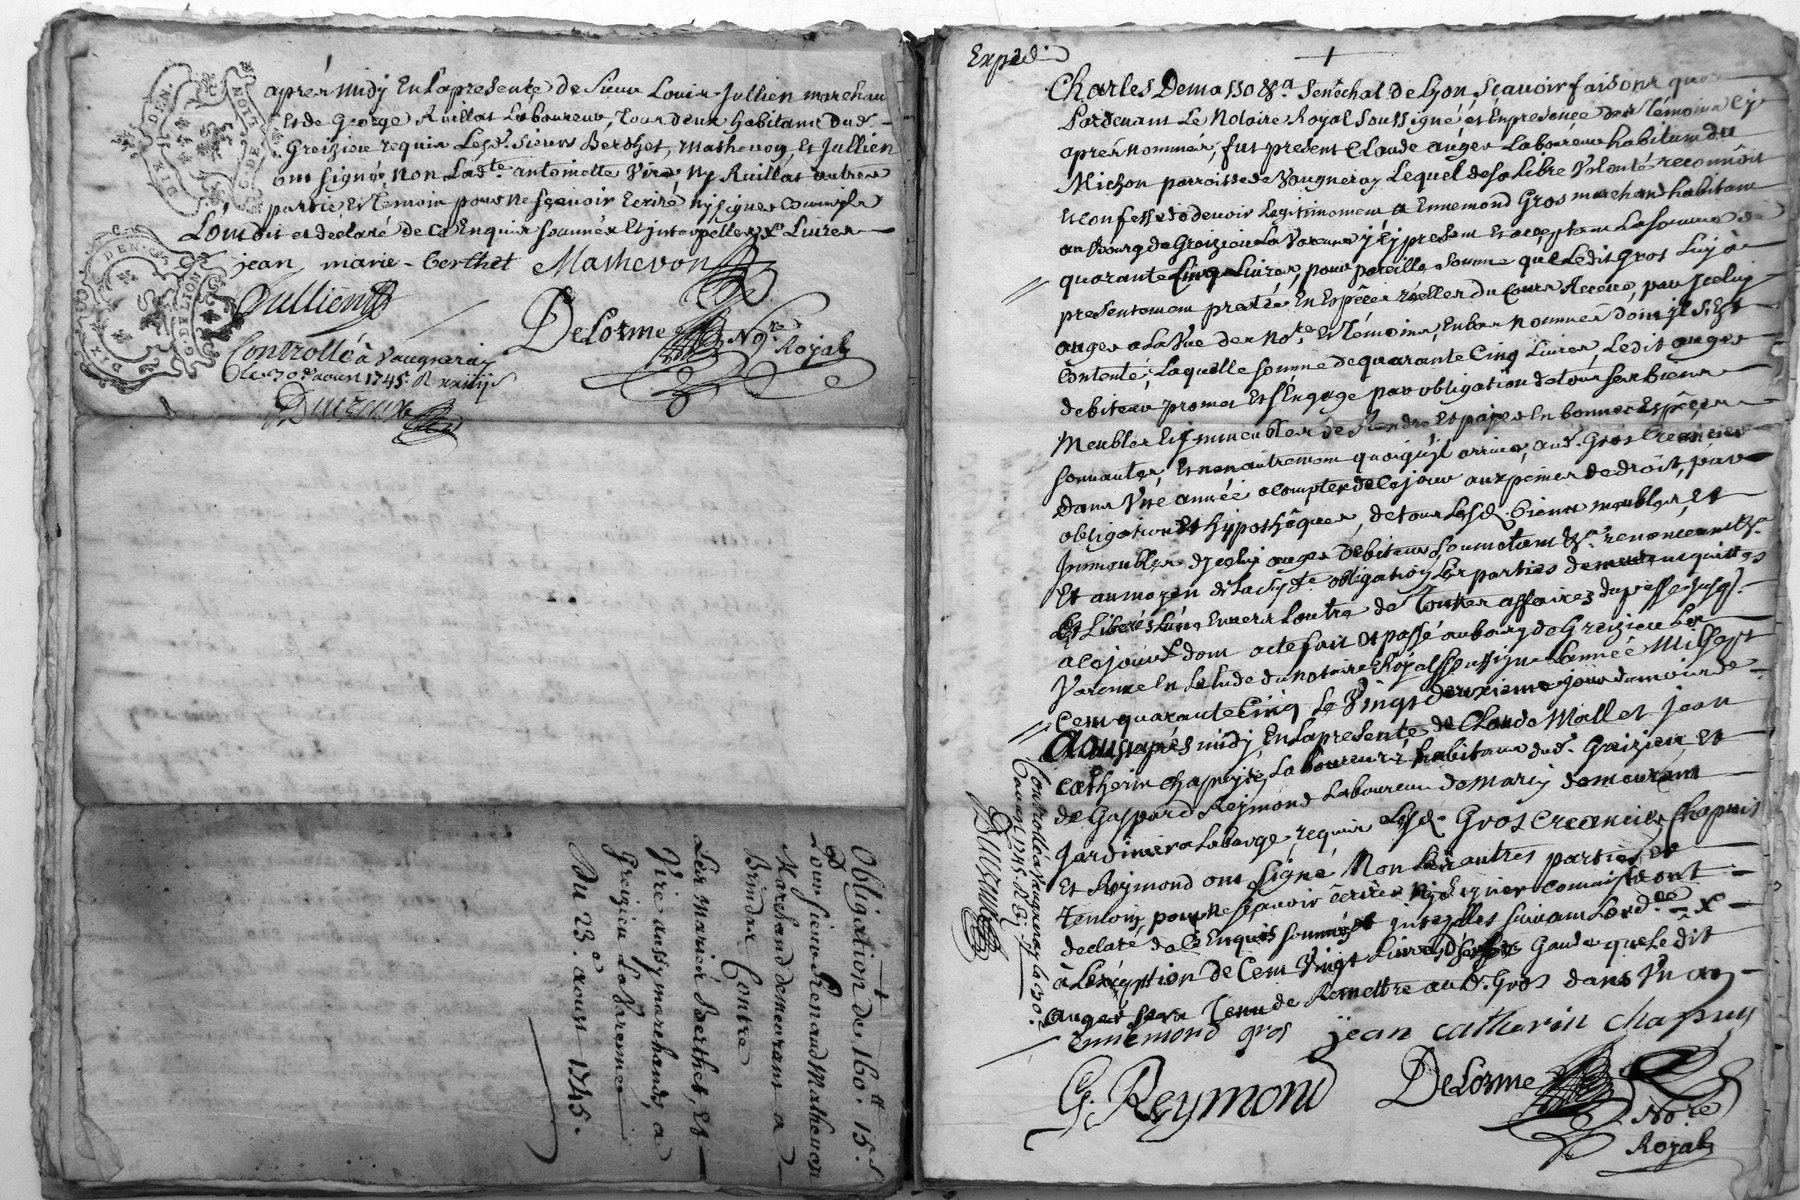 après midy En la presente de Sieur Louis Jullien marchau
et de George Ruillat Laboureur, tous deux habitants dud.
Greizieu requis Lesd. Sieurs Berthet, Mathevon, et Jullien
ont signé, Non Lad.te antoinette Vire Ny Ruillat autres
partie et témoin pour ne sçavoir Ecrire ny signer
Lont dit et declaré de ce Enquis sommés et interpellés Livres
jean marie Berthet Mathevon
Jullien
DeLorme No.re Royal
Controllé à Vaugneray
Le 30 aoust 1745. R
DE LION
G. DE
DEN.
DIX
DEN.
LION
DIX
Obligation de 160.tt 15.s
Pour sieur Renaud Mathevon
Marchand demeurant a
Brindas Contre
Les mariés Berthet, et
Vire aussy marchands, a
Greizieu La Varenne
Du 23.e aoust 1745.
Exped.
Charles Demasso &.a Senechal de Lyon, Sçavoir faisons que
Pardevant Le Notaire Royal soussigné, et En presence des Témoins cy
apres nommés, fut present Claude auger Laboureur habitant du
Michon parroisse de Vaugneray Lequel de sa Libre Volonté reconnoit
et confesse devoir Legitimement a Ennemond Gros marchand habitant
au Bourg de Greizieu La Varenne y cy present et acceptant La somme de
quarante Cinq Livres, pour pareille somme que Ledit Gros Luy a
presentement presté En Espèces réelles du Cours Receue par Jceluy
auger a La Vüe des No.re et Témoins En bas nommés dont jl s'Est
contenté; Laquelle somme de quarante Cinq Livres, Ledit auger
debiteur promet et s'Engage par obligation de tous ses biens
Meubles et Jmmeubles de Rendre et payer En bonnes Espèces
sonnantes, et non autrement quoi qu'jl arrive, aud. Gros Creancier
dans Une année a compter de ce jour aux peines de droit, par
obligation et hypothèques, de tous Lesd. biens meubles, et
Jmmeubles dJceluy auger debiteur soumetant &.a renonceant &.a
Et au moyen de La susd.te obligation Les parties demeurent quittes
Et Liberés L'un Envers L'autre de Toutes affaires du passé jusqs.
a ce jour dont acte fait et passé au bourg de Greizieu La
Varenne En L'etude du notaire Royal soussigné L'année Mil sept
Cent quarante Cinq Le Vingt deuxieme jour du mois de
Aoust après midy, En La presente de Claude Mallet, jean
catherin chapuys, Laboureurs habitans dud. Greizieu, et
de Gaspard Reymond Laboureur de marcy demeurant
Jardinier a Labarge, requis Lesd. Gros Creancier, Chapuis
Et Reymond ont signé Non Les autres parties, et
temoin pour ne sçavoir écrire, Ny signer ont
declaré de ce Enquis sommés et suivant Lord.ce
à L'exception de Cent Vingt Livres que Ledit
auger sera Tenu de Remettre au d. Gros dans Un an
ennemond gros jean catherin chapuys
G. Reymond DeLorme
No.re
Royal
Controllé a Vaugneray Le 30.
aoust 1745. R